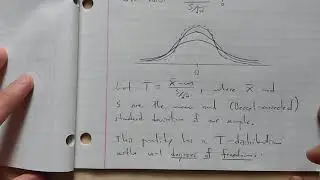 S/√n
0
Let T = X̄ - μ / S/√n, where X̄ and
S are the mean and (Bessel-corrected)
standard deviation of our sample.
This quantity has a T-distribution
with n-1 degrees of freedom.